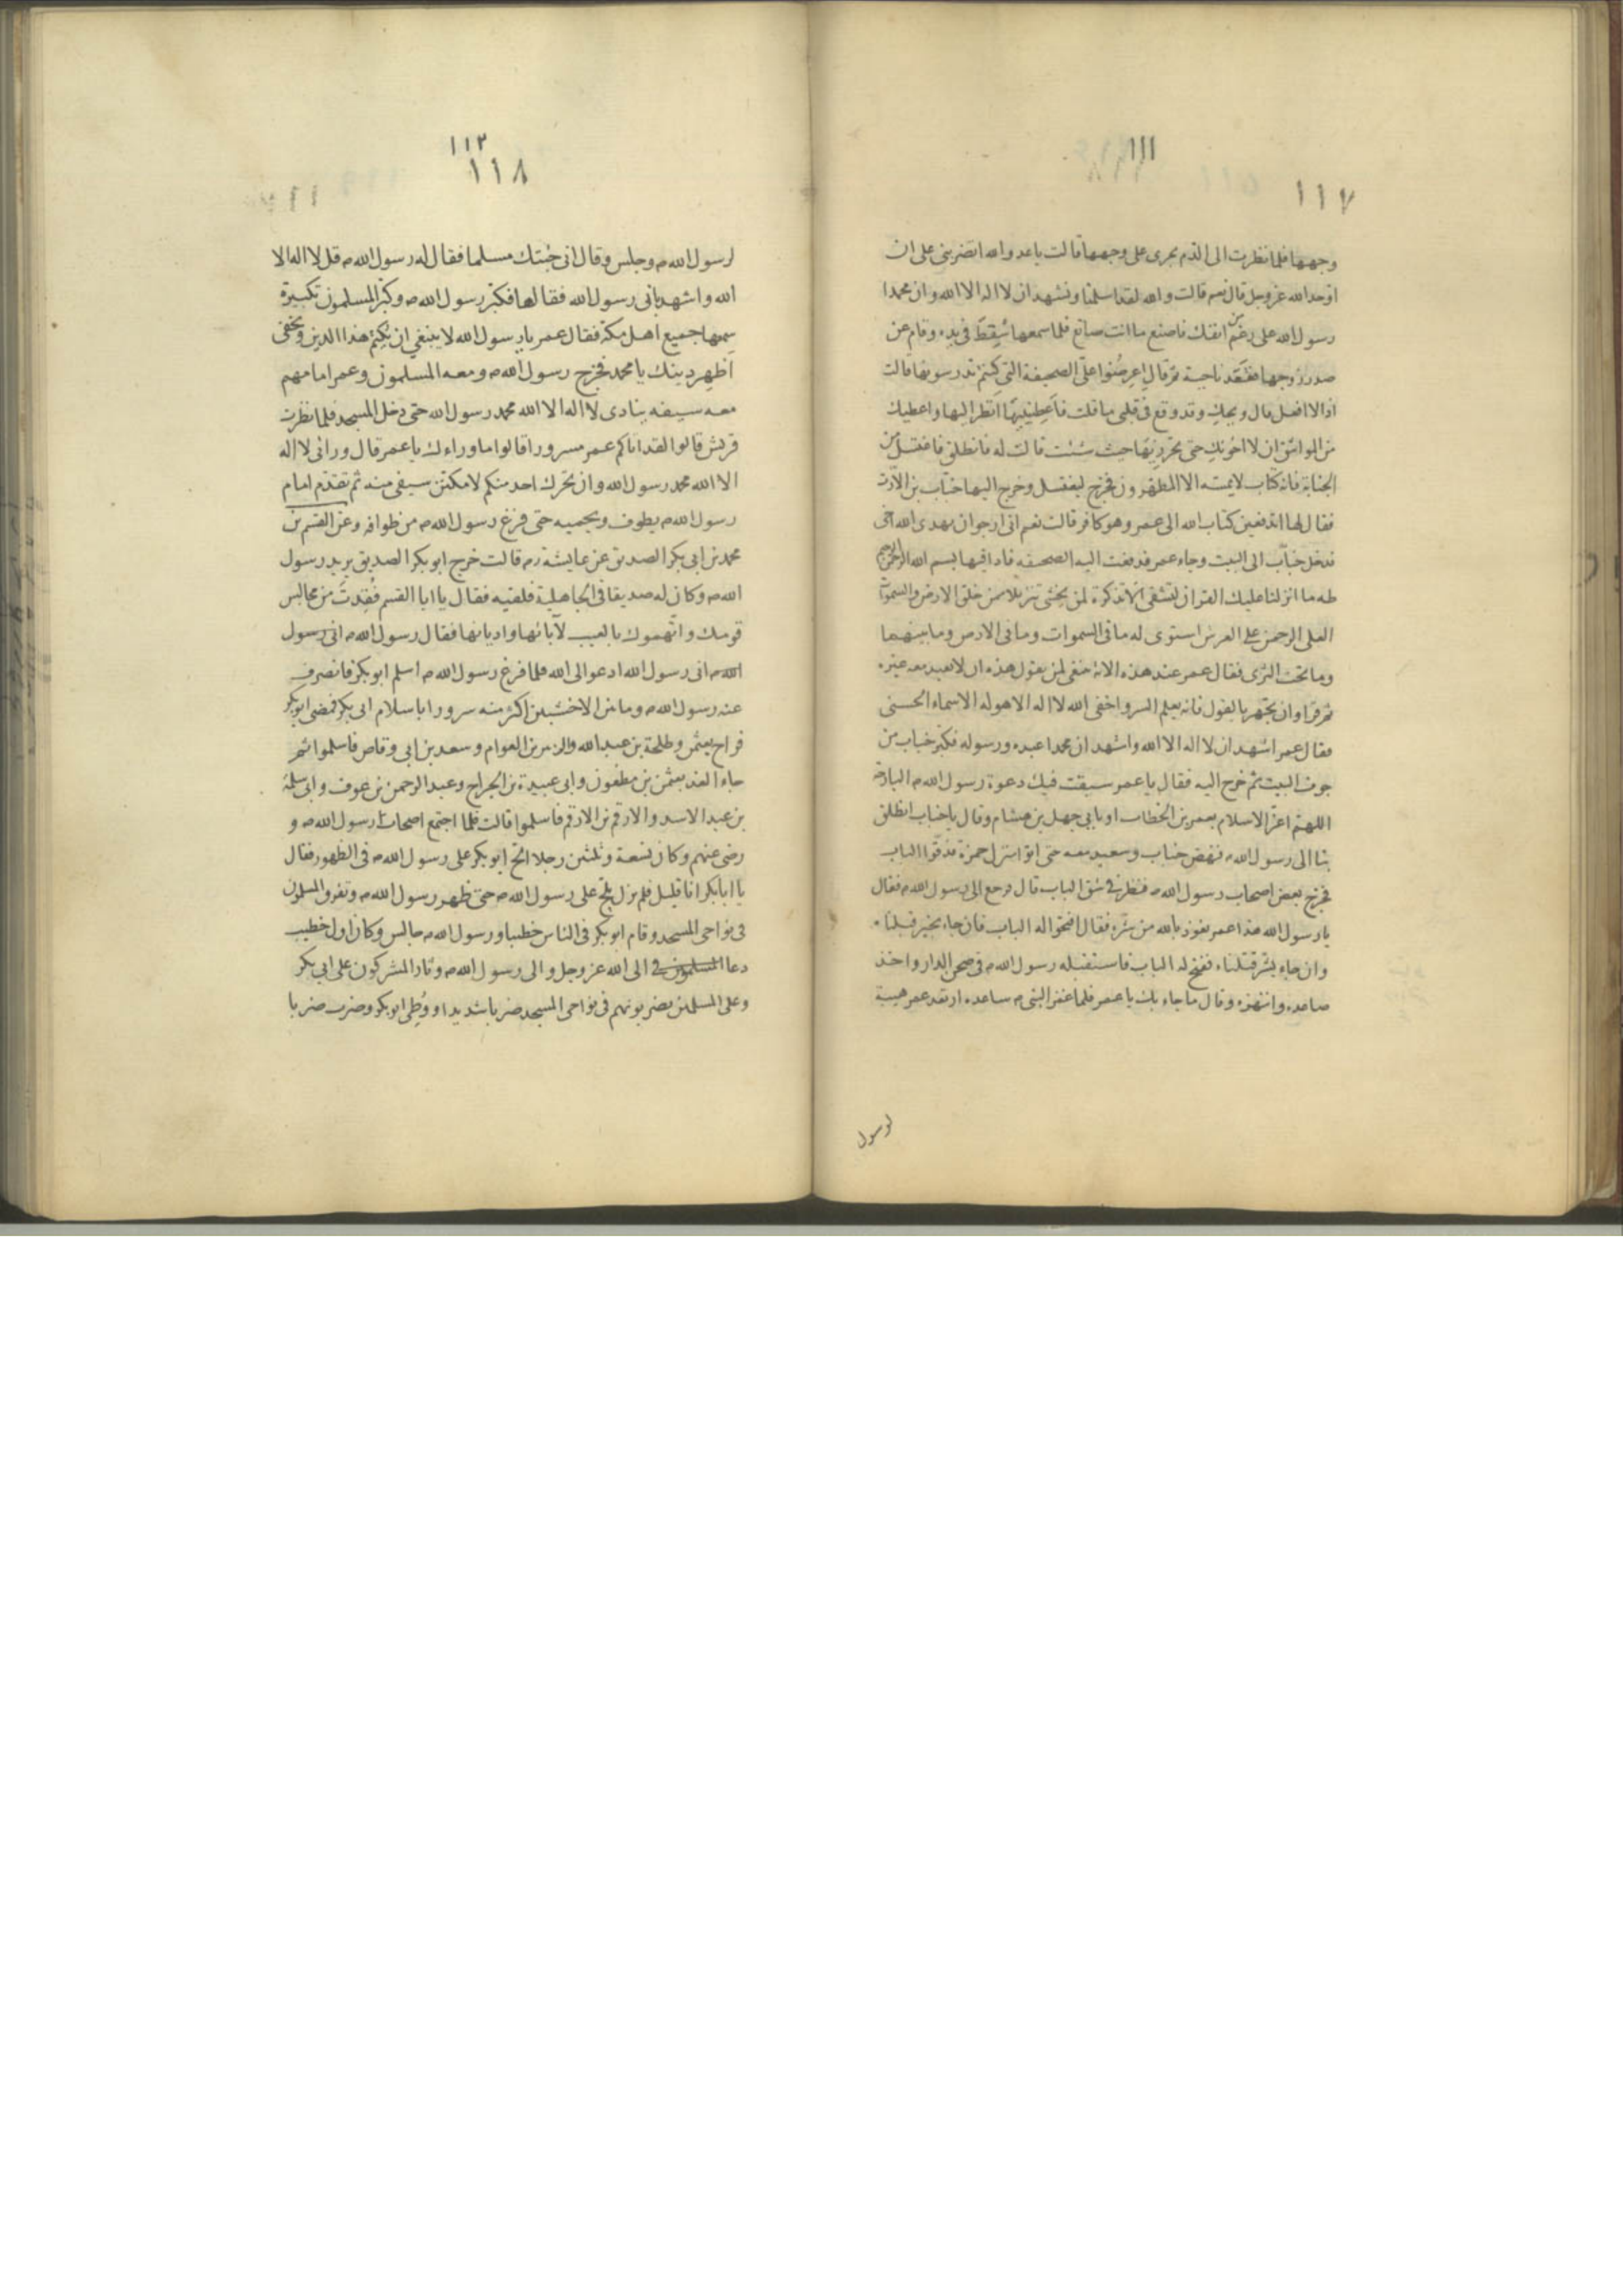 ١١١
١١٧
وجهها فلما نظرت الى الدم يجرى على وجهها قالت ياعدو الله اتضربنى على ان
اوحد الله عز وجل قال نعم قالت والله لقد اسلمنا ونشهد ان لا اله الا الله وان محمدا
رسول الله على رغم من انفك فاصنع ما انت صانع فلما سمعها سُقِطَ فى يده وقام عن
صدر زوجها فقعد ناحية ثم قال اعرضوا علىّ الصحيفة التى كنتم تدرسونها قالت
اذا لا افعل قال ويحكِ وقد وقع فى قلبى ما قلت فاَعطِينِيهَا انظر اليها واعطيك
من المواثق ان لا اخونك حتى تحرزيها حيث شئت قالت له فانطلق فاغتسل من
الجنابة فانه كتاب لا يمسه الا المطهرون فخرج ليغتسل وخرج اليها خباب بن الارت
فقال لها اتدفعين كتاب الله الى عمر وهو كافر قالت نعم انى ارجو ان يهدى الله اخى
فدخل خباب الى البيت وجاء عمر فدفعت اليه الصحيفه فاذا فيها بسم الله الرحمن الرحيم
طه ما انزلنا عليك القران لتشقى الا تذكرة لمن يخشى تنزيلا ممن خلق الارض والسموات
العلى الرحمن على العرش استوى له ما فى السموات وما فى الارض وما بينهما
وما تحت الثرى فقال عمر عند هذه الاية ينبغى لمن يقول هذه ان لا يعبد معه غيره
ثم قرا وان تجهر بالقول فانه يعلم السر واخفى الله لا اله الا هو له الاسماء الحسنى
فقال عمر اشهد ان لا اله الا الله واشهد ان محمدا عبده ورسوله فكبر خباب من
جوف البيت ثم خرج اليه فقال يا عمر سبقت فيك دعوة رسول الله م البارحة
اللهم اعز الاسلام بعمر بن الخطاب او بابى جهل بن هشام وقال ياخباب انطلق
بنا الى رسول الله م فنهض خباب وسعيد معه حتى اتوا منزل حمزة فدقوا الباب
فخرج بعض اصحاب رسول الله م فنظر فى شق الباب قال فرجع الى رسول الله م فقال
يا رسول الله هذا عمر نعوذ بالله من شره فقال افتحوا له الباب فان جاء بخير قبلناه
وان جاء بشر قتلناه ففتح له الباب فاستقبله رسول الله م فى صحن الدار واخذ
صاعده وانتهزه وقال ما جاء بك يا عمر فلما غمز النبى م ساعده ارتعد عمر هيبة
لرسول
١١٢
١١٨
لرسول الله م وجلس وقال انى جئتك مسلما فقال له رسول الله م قل لا اله الا
الله واشهد بانى رسول الله فقالها فكبر رسول الله م وكبر المسلمون تكبيرة
سمعها جميع اهل مكة فقال عمر يارسول الله لا ينبغى ان يُكتم هذا الدين ويخفى
اظهر دينك يا محمد فخرج رسول الله م ومعه المسلمون وعمر امامهم
معه سيفه ينادى لا اله الا الله محمد رسول الله حتى دخل المسجد فلما نظرت
قريش قالوا لقد اتاكم عمر مسرورا قالوا ما وراءك يا عمر قال ورائى لا اله
الا الله محمد رسول الله وان تحرك احد منكم لامكنن سيفى منه ثم تقدم امام
رسول الله م يطوف ويحميه حتى فرغ رسول الله م من طوافه وعن القسم بن
محمد بن ابى بكر الصديق عن عايشة رم قالت خرج ابو بكر الصديق يريد رسول
الله م وكان له صديقا فى الجاهلية فلقيه فقال يا ابا القسم فُقِدتَ من مجالس
قومك واتهموك بالعيب لآبائها واديانها فقال رسول الله م انى رسول
الله م انى رسول الله ادعو الى الله فلما فرغ رسول الله م اسلم ابو بكر فانصرف
عنه رسول الله م وما من الاخشبين اكثر منه سرورا باسلام ابى بكر فمضى ابو بكر
فراح بعثمن وطلحة بن عبد الله والزبير بن العوام وسعد بن ابى وقاص فاسلموا ثم
جاء الغد بعثمن بن مظعون وابى عبيدة بن الجراح وعبد الرحمن بن عوف وابى سلمة
بن عبد الاسد والارقم بن الارقم فاسلموا قالت فلما اجتمع اصحاب رسول الله م و
رضى عنهم وكان تسعة وثلثين رجلا الح ابو بكر على رسول الله م فى الظهور فقال
يا ابا بكر انا قليل فلم يزل يلح على رسول الله م حتى ظهر رسول الله م وتفرق المسلمون
فى نواحى المسجد وقام ابو بكر فى الناس خطيبا ورسول الله م جالس وكان اول خطيب
دعا المسلمون فى الى الله عز وجل والى رسول الله م وثار المشركون على ابى بكر
وعلى المسلمين يضربونهم فى نواحى المسجد ضربا شديدا ووُطِى ابو بكر وضرب ضربا